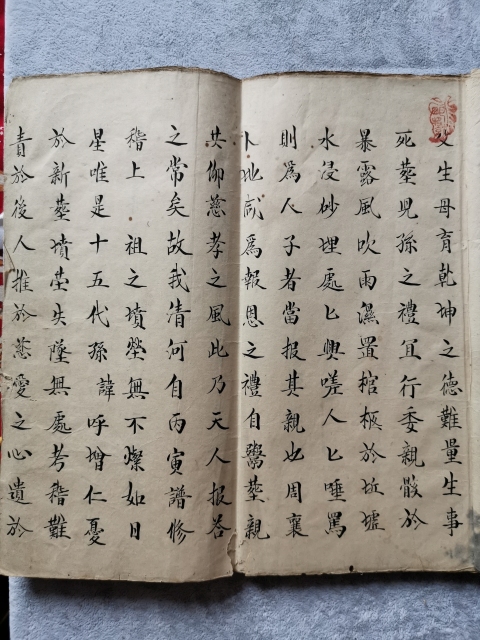 父生母育乾坤之德難量生事
死塟児孫之禮宜行委親骸於
暴露風吹雨濕置棺柩於坵墟
水浸砂埋處匕興嗟人匕唾罵
則爲人子者當报其親也周襄
卜地咸爲報恩之禮自鬻塟親
共仰慈孝之風此乃天人报荅
之常矣故我清何自丙寅譜修
稽上 祖之墳塋無不燦如日
星唯是十五代孫 諱呼增仁憂
於新塟墳茔失墜無處考稽難
責於後人推於慈愛之心遺於